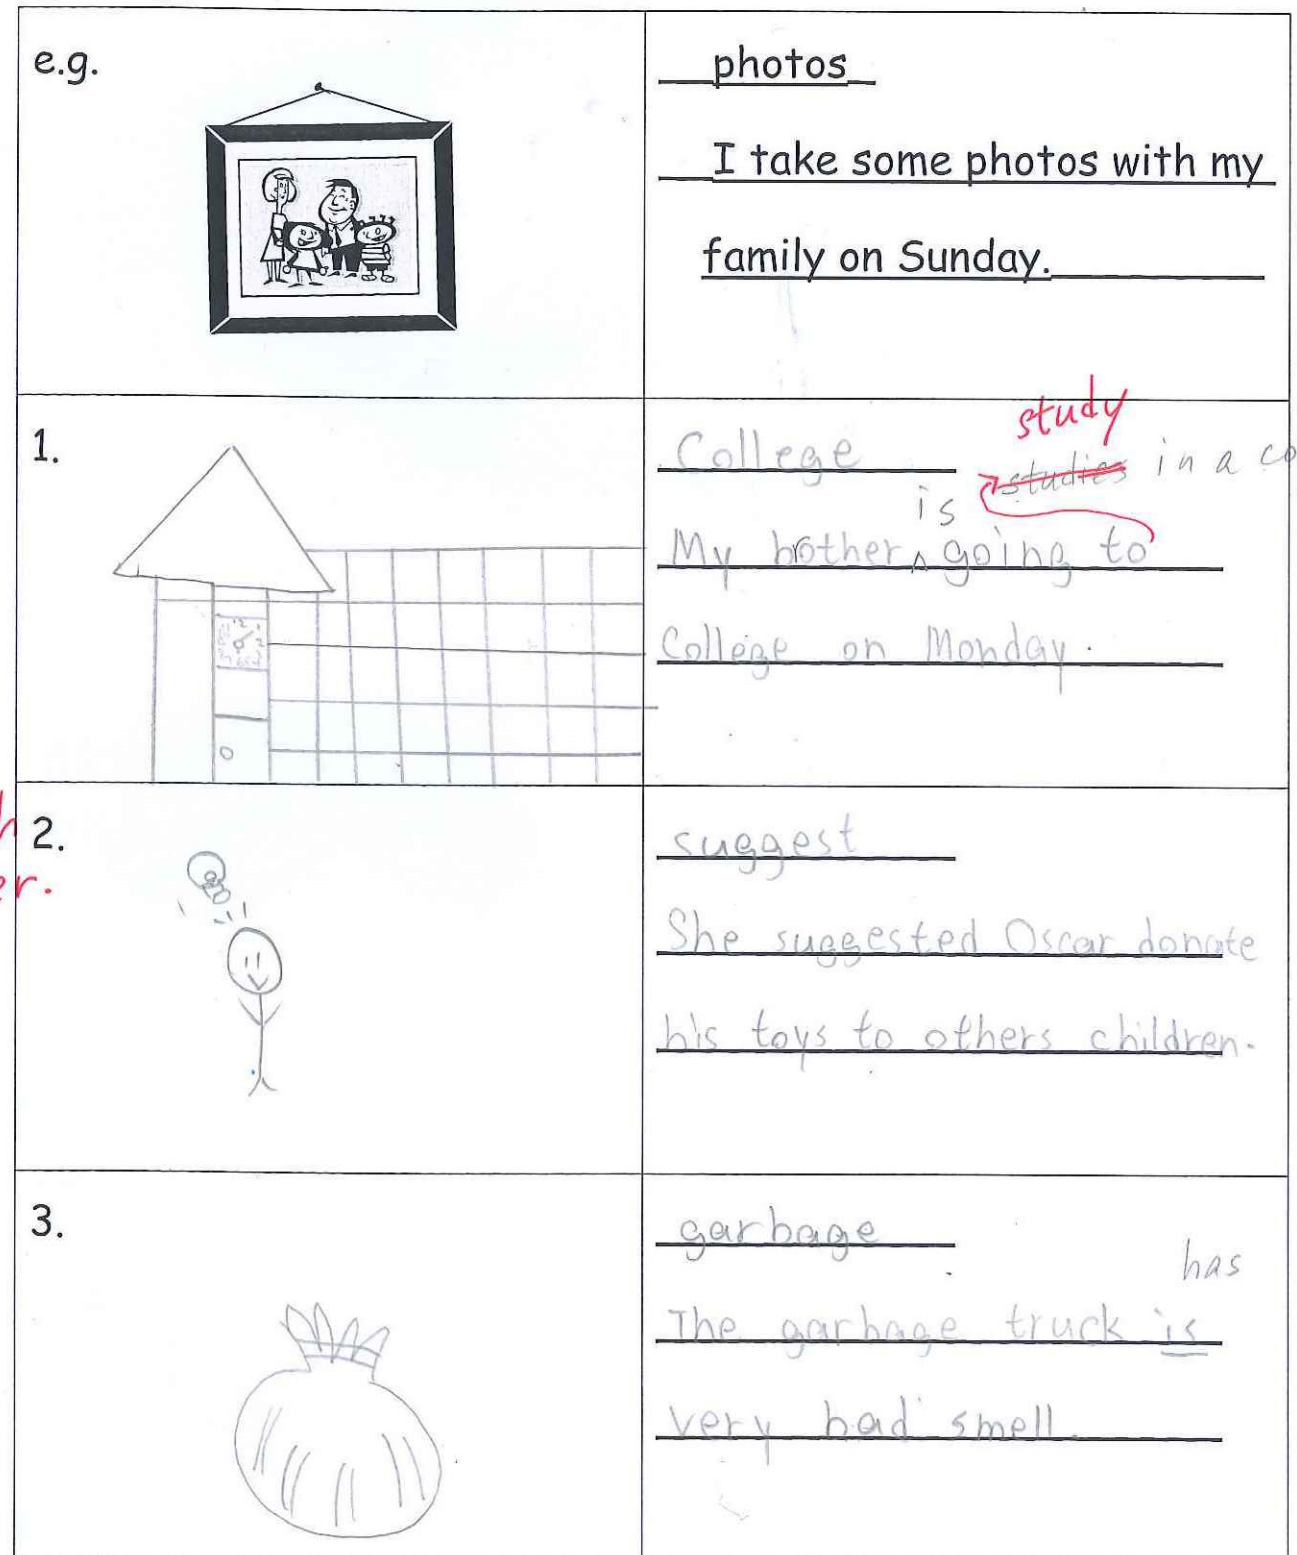 e.g.
photos
I take some photos with my
family on Sunday.
1.
study
College
studies in a co
is
My brother ^ going to
College on Monday.
h
er.
2.
suggest
She suggested Oscar donate
his toys to others children.
3.
garbage
has
The garbage truck is
very bad smell.